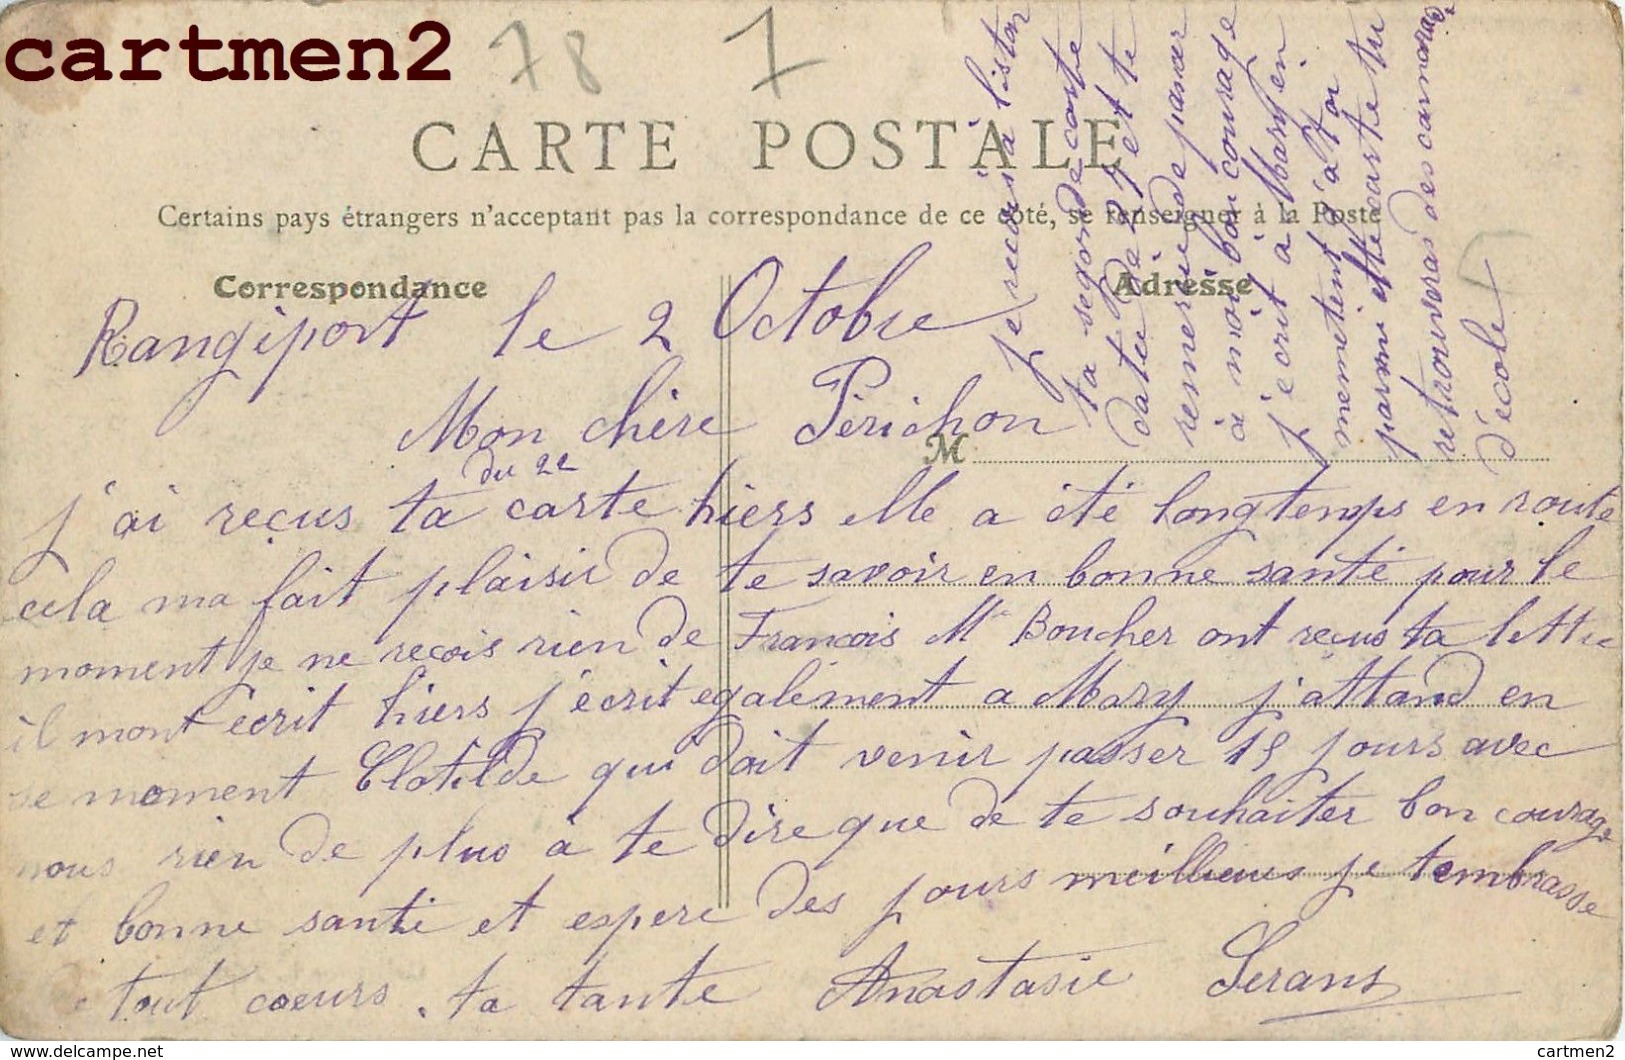 cartmen2
78
7
CARTE POSTALE
Certains pays étrangers n'acceptant pas la correspondance de ce côté, se renseigner à la Poste
Correspondance
Adresse
M
Rangiport le 2 Octobre
Mon chère Périchon
du 22
j'ai reçus ta carte hiers elle a été longtemps en route
cela ma fait plaisir de te savoir en bonne santé pour le
moment je ne reçois rien de François Mr Boucher ont reçus ta lettre
il mont écrit hiers j'écrit egalement a Mary j'attand en
se moment Clotilde qui doit venir passer 15 jours avec
nous rien de plus à te dire que de te souhaiter bon courage
et bonne santé et espere des jours meilleurs je tembrasse
tout coeurs. ta tante Anastasie Serans
je recois à l'istan
ta segonde carte
datée de 27 et te
remercie de
à moi bon courage
j'ecrit à Mary en
memetemt
parmi cette carte tu
retrouveras des camarad
d'école
delcampe.net
cartmen2